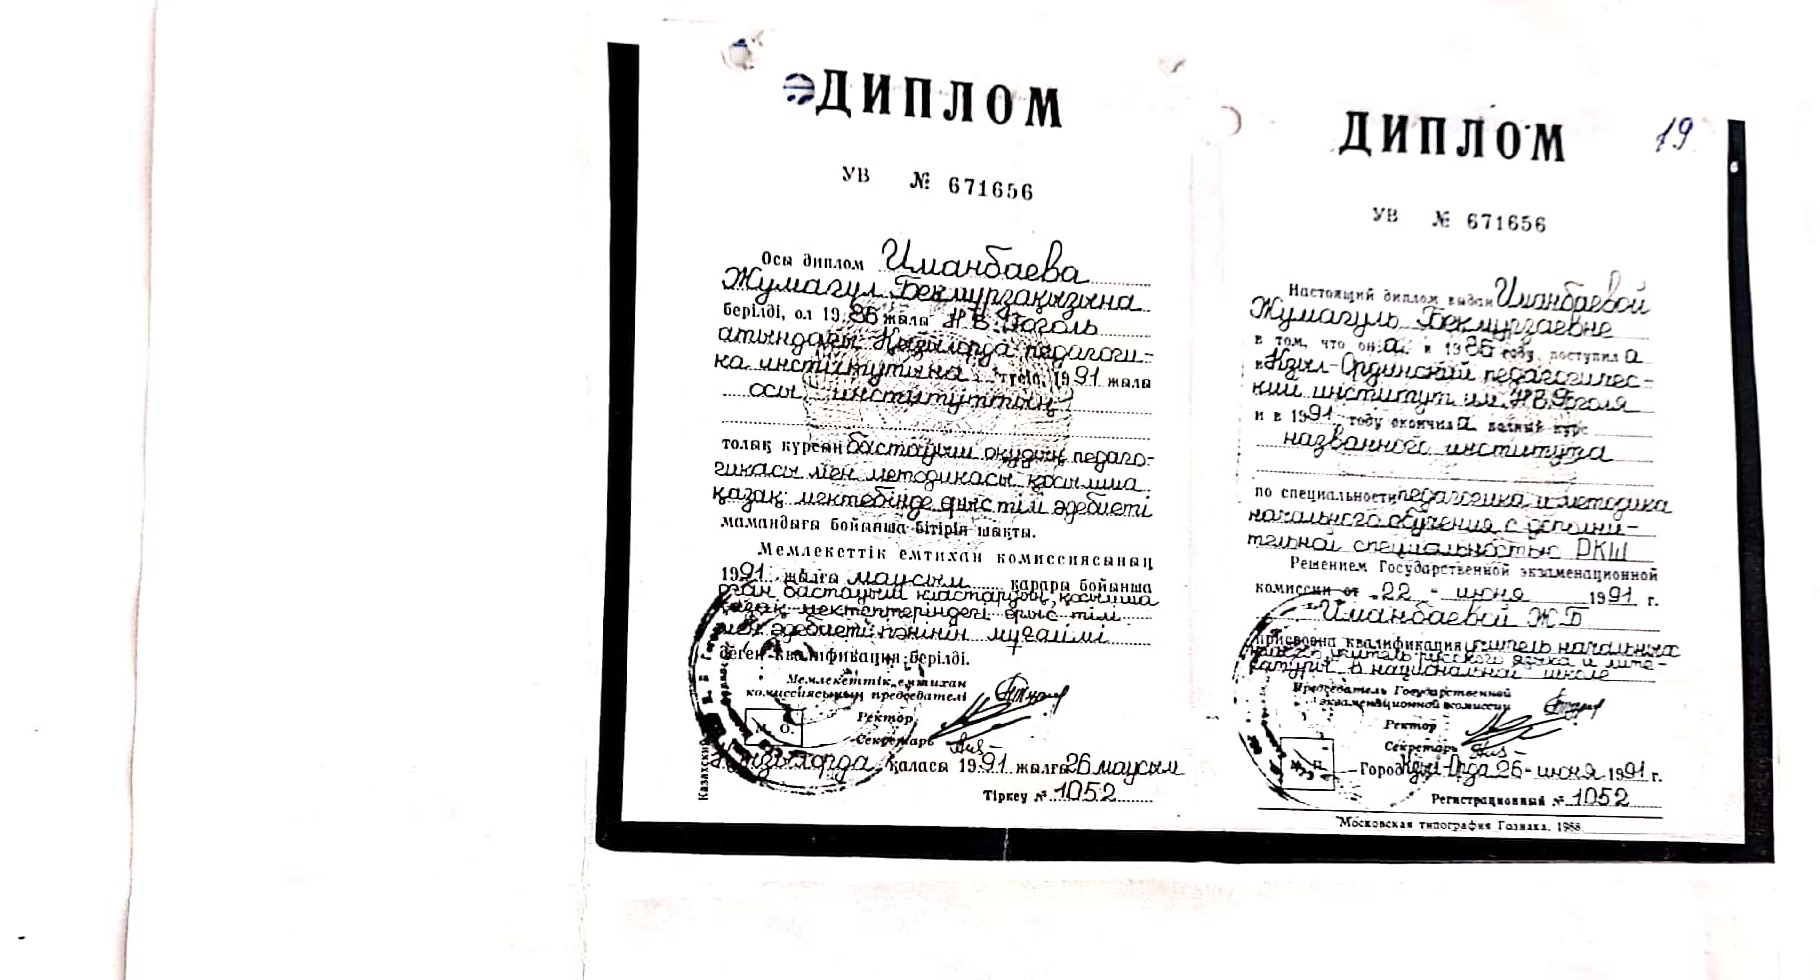 ДИПЛОМ
УВ № 671656
Осы диплом Иманбаева
Жумагул Бекмурзақызына
берілді, ол 1986 жылы Н.В.Гоголь
атындағы Қызылорда педагоги-
ка институтына түсіп, 1991 жылы
осы институттың
толық курсын бастауыш оқудың педаго-
гикасы мен методикасы қосымша
қазақ мектебінде орыс тілі әдебиеті
мамандығы бойынша бітіріп шықты.
Мемлекеттік емтихан комиссиясының
1991 жылғы маусым қарары бойынша
ған бастауыш кластардың, қосымша
қазақ мектептеріндегі орыс тілі
мен әдебиеті пәнінің мұғалімі
деген квалификация берілді.
Мемлекеттік емтихан
комиссиясының председателі
Ректор
Секретарь
М. О.
Қызылорда қаласы 1991 жылғы 26 маусым
Тіркеу № 1052
ДИПЛОМ
19
УВ № 671656
Настоящий диплом выдан Иманбаевой
Жумагуль Бекмурзаевне
в том, что она в 1986 году поступила
в Кзыл-Ординский педагогичес-
кий институт им. Н.В.Гоголя
и в 1991 году окончила полный курс
названного института
по специальности педагогика и методика
начального обучения с дополни-
тельной специальностью РКШ
Решением Государственной экзаменационной
комиссии от „22 - июня 1991 г.
Иманбаевой Ж.Б
присвоена квалификация учитель начальных
классов, учитель русского языка и лите-
ратуры в национальной школе
Председатель Государственной
экзаменационной комиссии
Ректор
Секретарь
М. П.
Город Кзыл-Орда 26 - июня 1991 г.
Регистрационный № 1052
Московская типография Гознака. 1988.